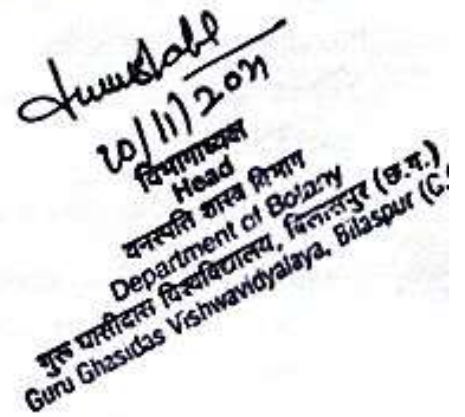 विभागाध्यक्ष
Head
वनस्पति शास्त्र विभाग
Department of Botany
गुरू घासीदास विश्वविद्यालय, बिलासपुर (छ.ग.)
Guru Ghasidas Vishwavidyalaya, Bilaspur (C.G